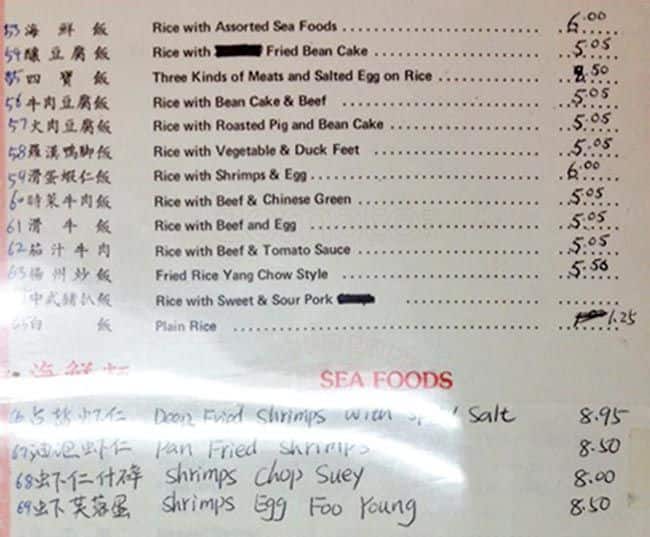 53 海鮮飯 Rice with Assorted Sea Foods 6.00
54 釀豆腐飯 Rice with Fried Bean Cake 5.05
55 四寶飯 Three Kinds of Meats and Salted Egg on Rice .50
56 牛肉豆腐飯 Rice with Bean Cake & Beef 5.05
57 火肉豆腐飯 Rice with Roasted Pig and Bean Cake 5.05
58 羅漢鴨脚飯 Rice with Vegetable & Duck Feet 5.05
59 滑蛋蝦仁飯 Rice with Shrimps & Egg 6.00
60 時菜牛肉飯 Rice with Beef & Chinese Green 5.05
61 滑牛飯 Rice with Beef and Egg 5.05
62 茄汁牛肉 Rice with Beef & Tomato Sauce 5.05
63 楊州炒飯 Fried Rice Yang Chow Style 5.50
中式豬扒飯 Rice with Sweet & Sour Pork
65 白飯 Plain Rice 1.25
海鮮 SEA FOODS
66 虾仁 Deep Fried Shrimps with Salt 8.95
67 油泡虾仁 Pan Fried Shrimps 8.50
68 虾仁什碎 Shrimps Chop Suey 8.00
69 虾芙蓉蛋 Shrimps Egg Foo Young 8.50